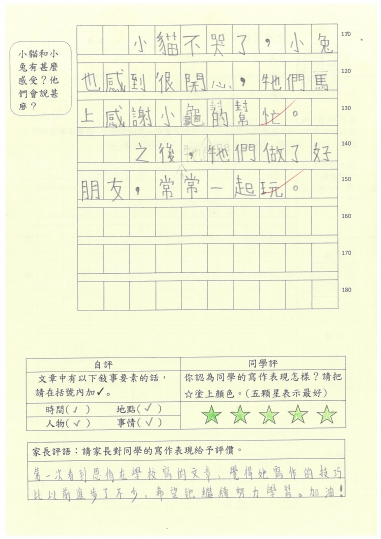 小貓和小
兔有甚麼
感受？他
們會說甚
麼？
小貓不哭了，小兔
170
也感到很開心，牠們馬
120
上感謝小龜的幫忙。
130
之後，牠們做了好
140
朋友，常常一起玩。
150
160
170
180
自評
文章中有以下敍事要素的話，
請在括號內加✓。
時間(✓) 地點(✓)
人物(✓) 事情(✓)
同學評
你認為同學的寫作表現怎樣？請把
☆塗上顏色。(五顆星表示最好)
家長評語：請家長對同學的寫作表現給予評價。
第一次看到恩悄在學校寫的文章，覺得她寫作的技巧
比以前進步了不少，希望她繼續努力學習。加油！